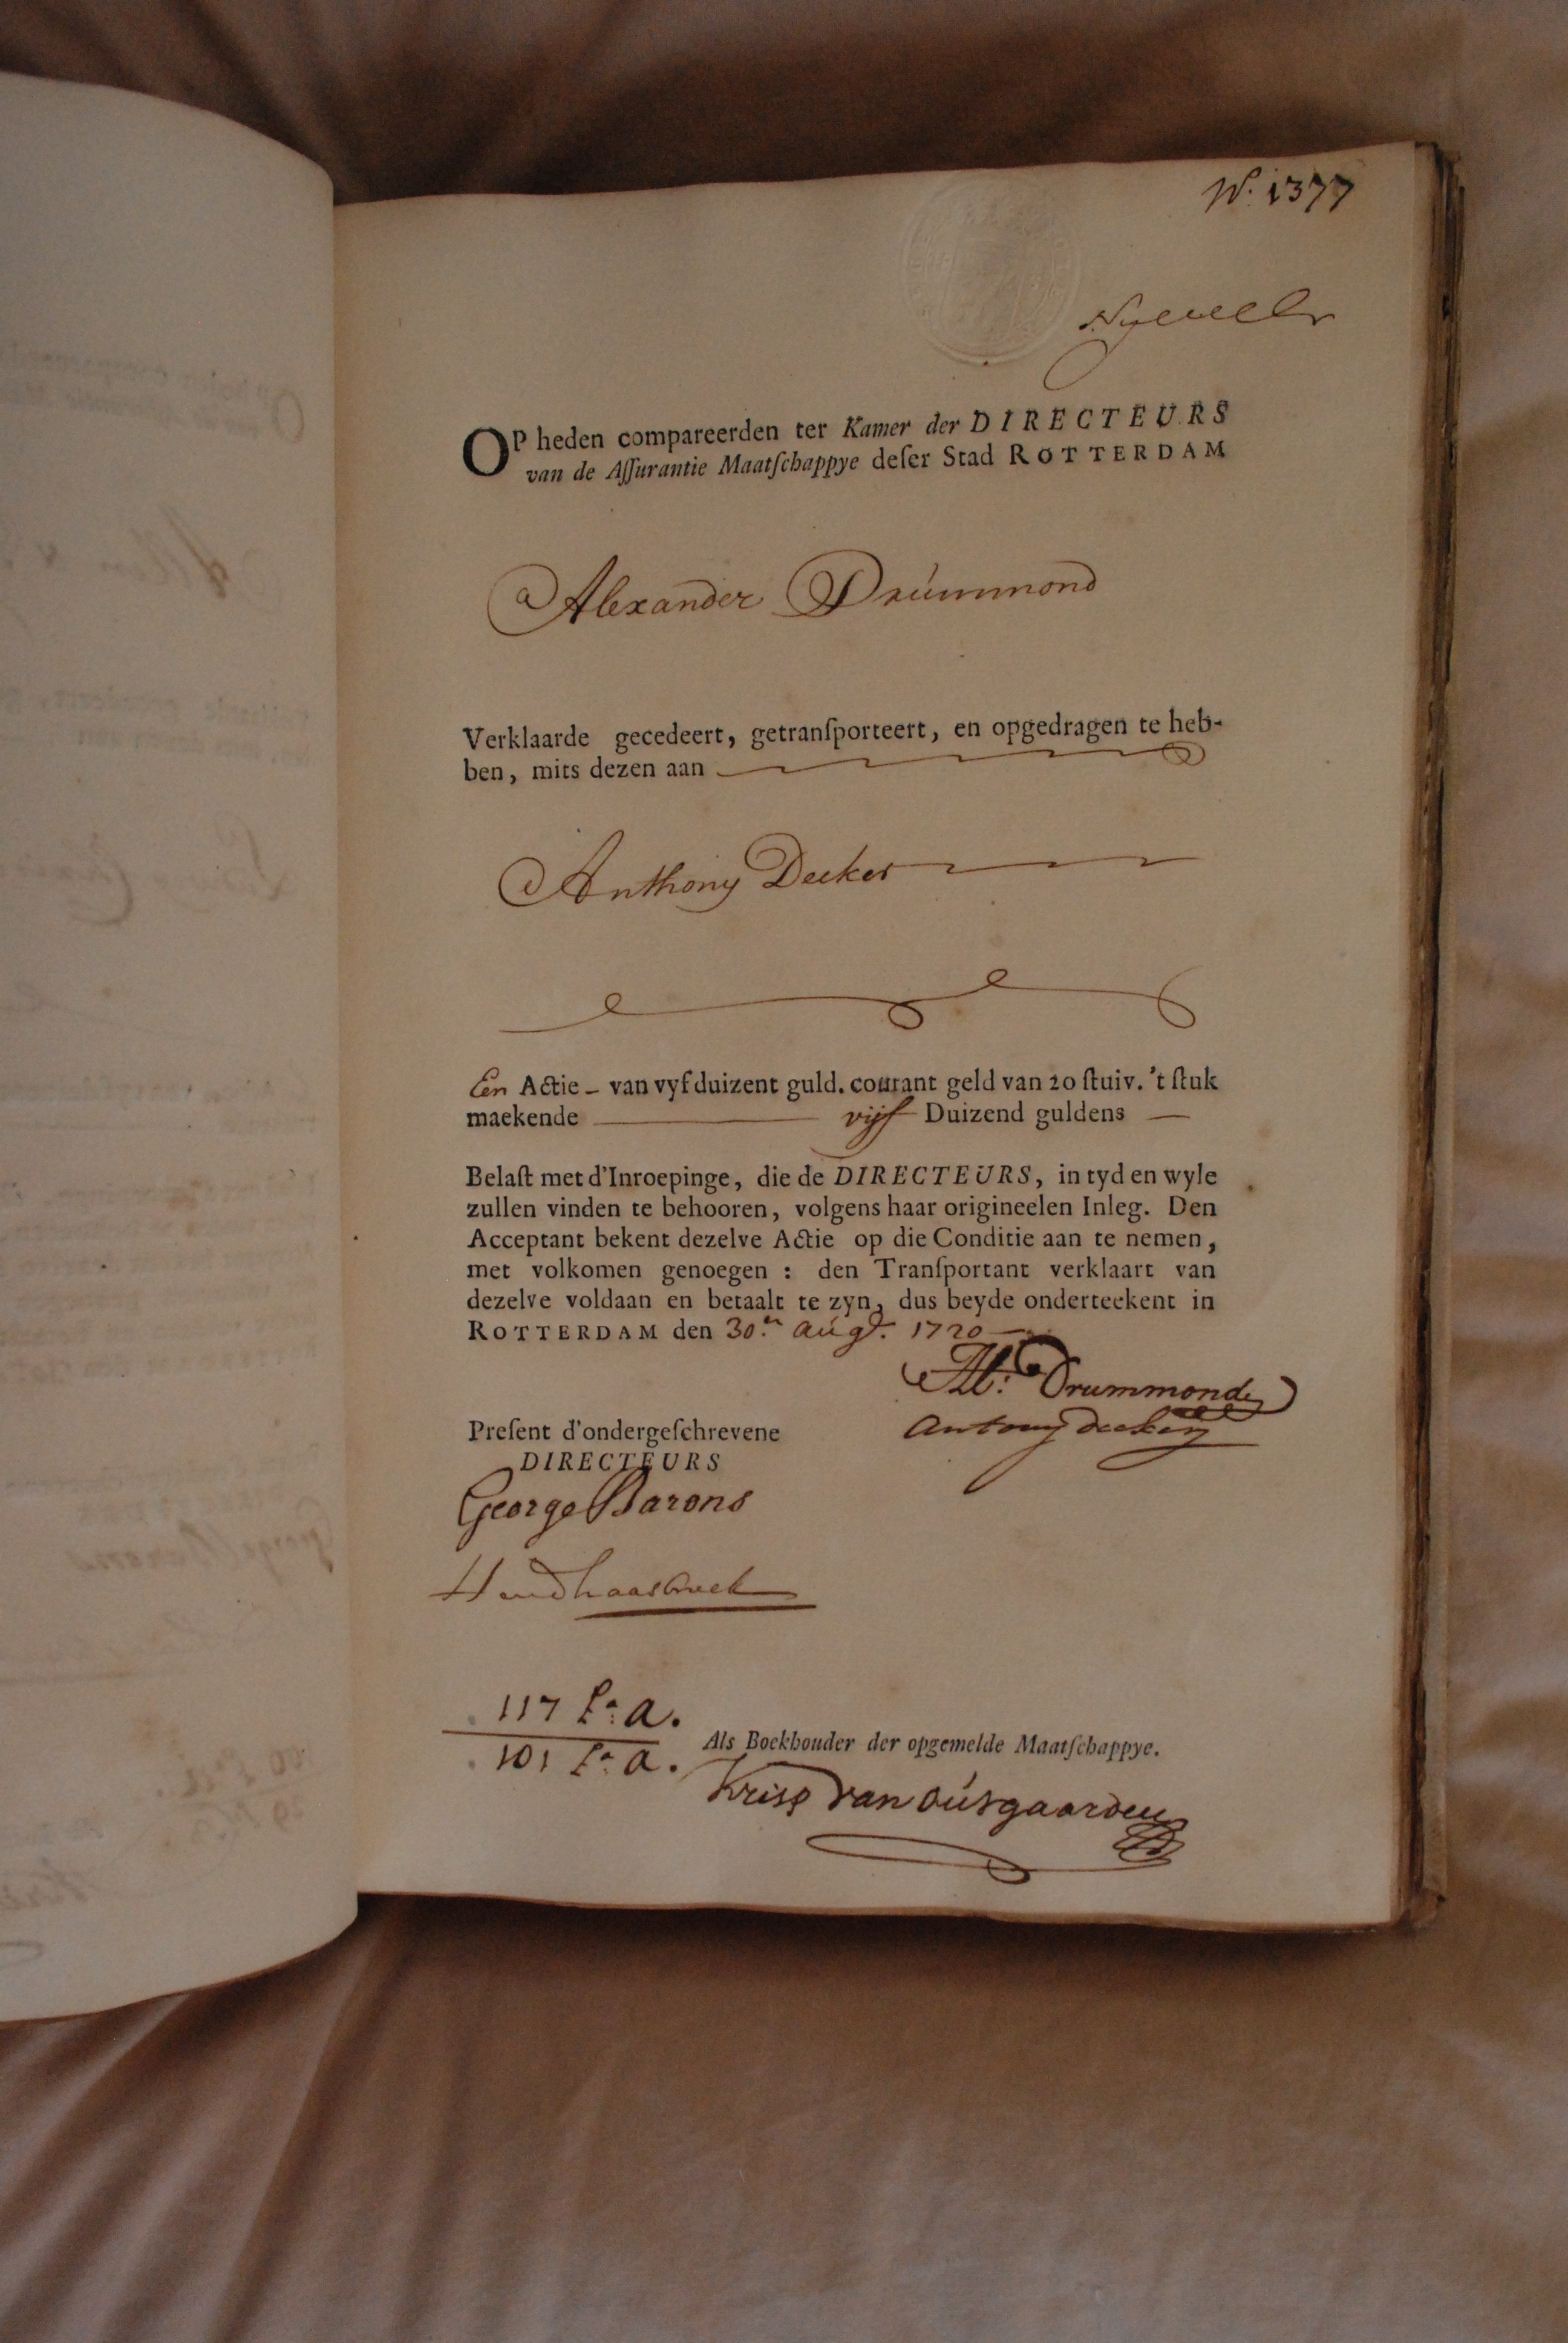 N.º 1377
OP heden compareerden ter Kamer der DIRECTEURS
van de Aſſurantie Maatſchappye deſer Stad ROTTERDAM
Alexander Drúmmond
Verklaarde gecedeert, getranſporteert, en opgedragen te heb-
ben, mits dezen aan
Anthony Decker
Een Actie - van vyfduizent guld. courant geld van 20 ſtuiv. 't ſtuk
maekende vijf Duizend guldens
Belaſt met d'Inroepinge, die de DIRECTEURS, in tyd en wyle
zullen vinden te behooren, volgens haar origineelen Inleg. Den
Acceptant bekent dezelve Actie op die Conditie aan te nemen,
met volkomen genoegen : den Tranſportant verklaart van
dezelve voldaan en betaalt te zyn, dus beyde onderteekent in
ROTTERDAM den 30.en aúgt. 1720
Al: Drummond
Antony decker
Preſent d'ondergeſchrevene
DIRECTEURS
George Barons
117 L:a.
101 L:a.
Als Boekhouder der opgemelde Maatſchappye.
Krisp van oútgaarden